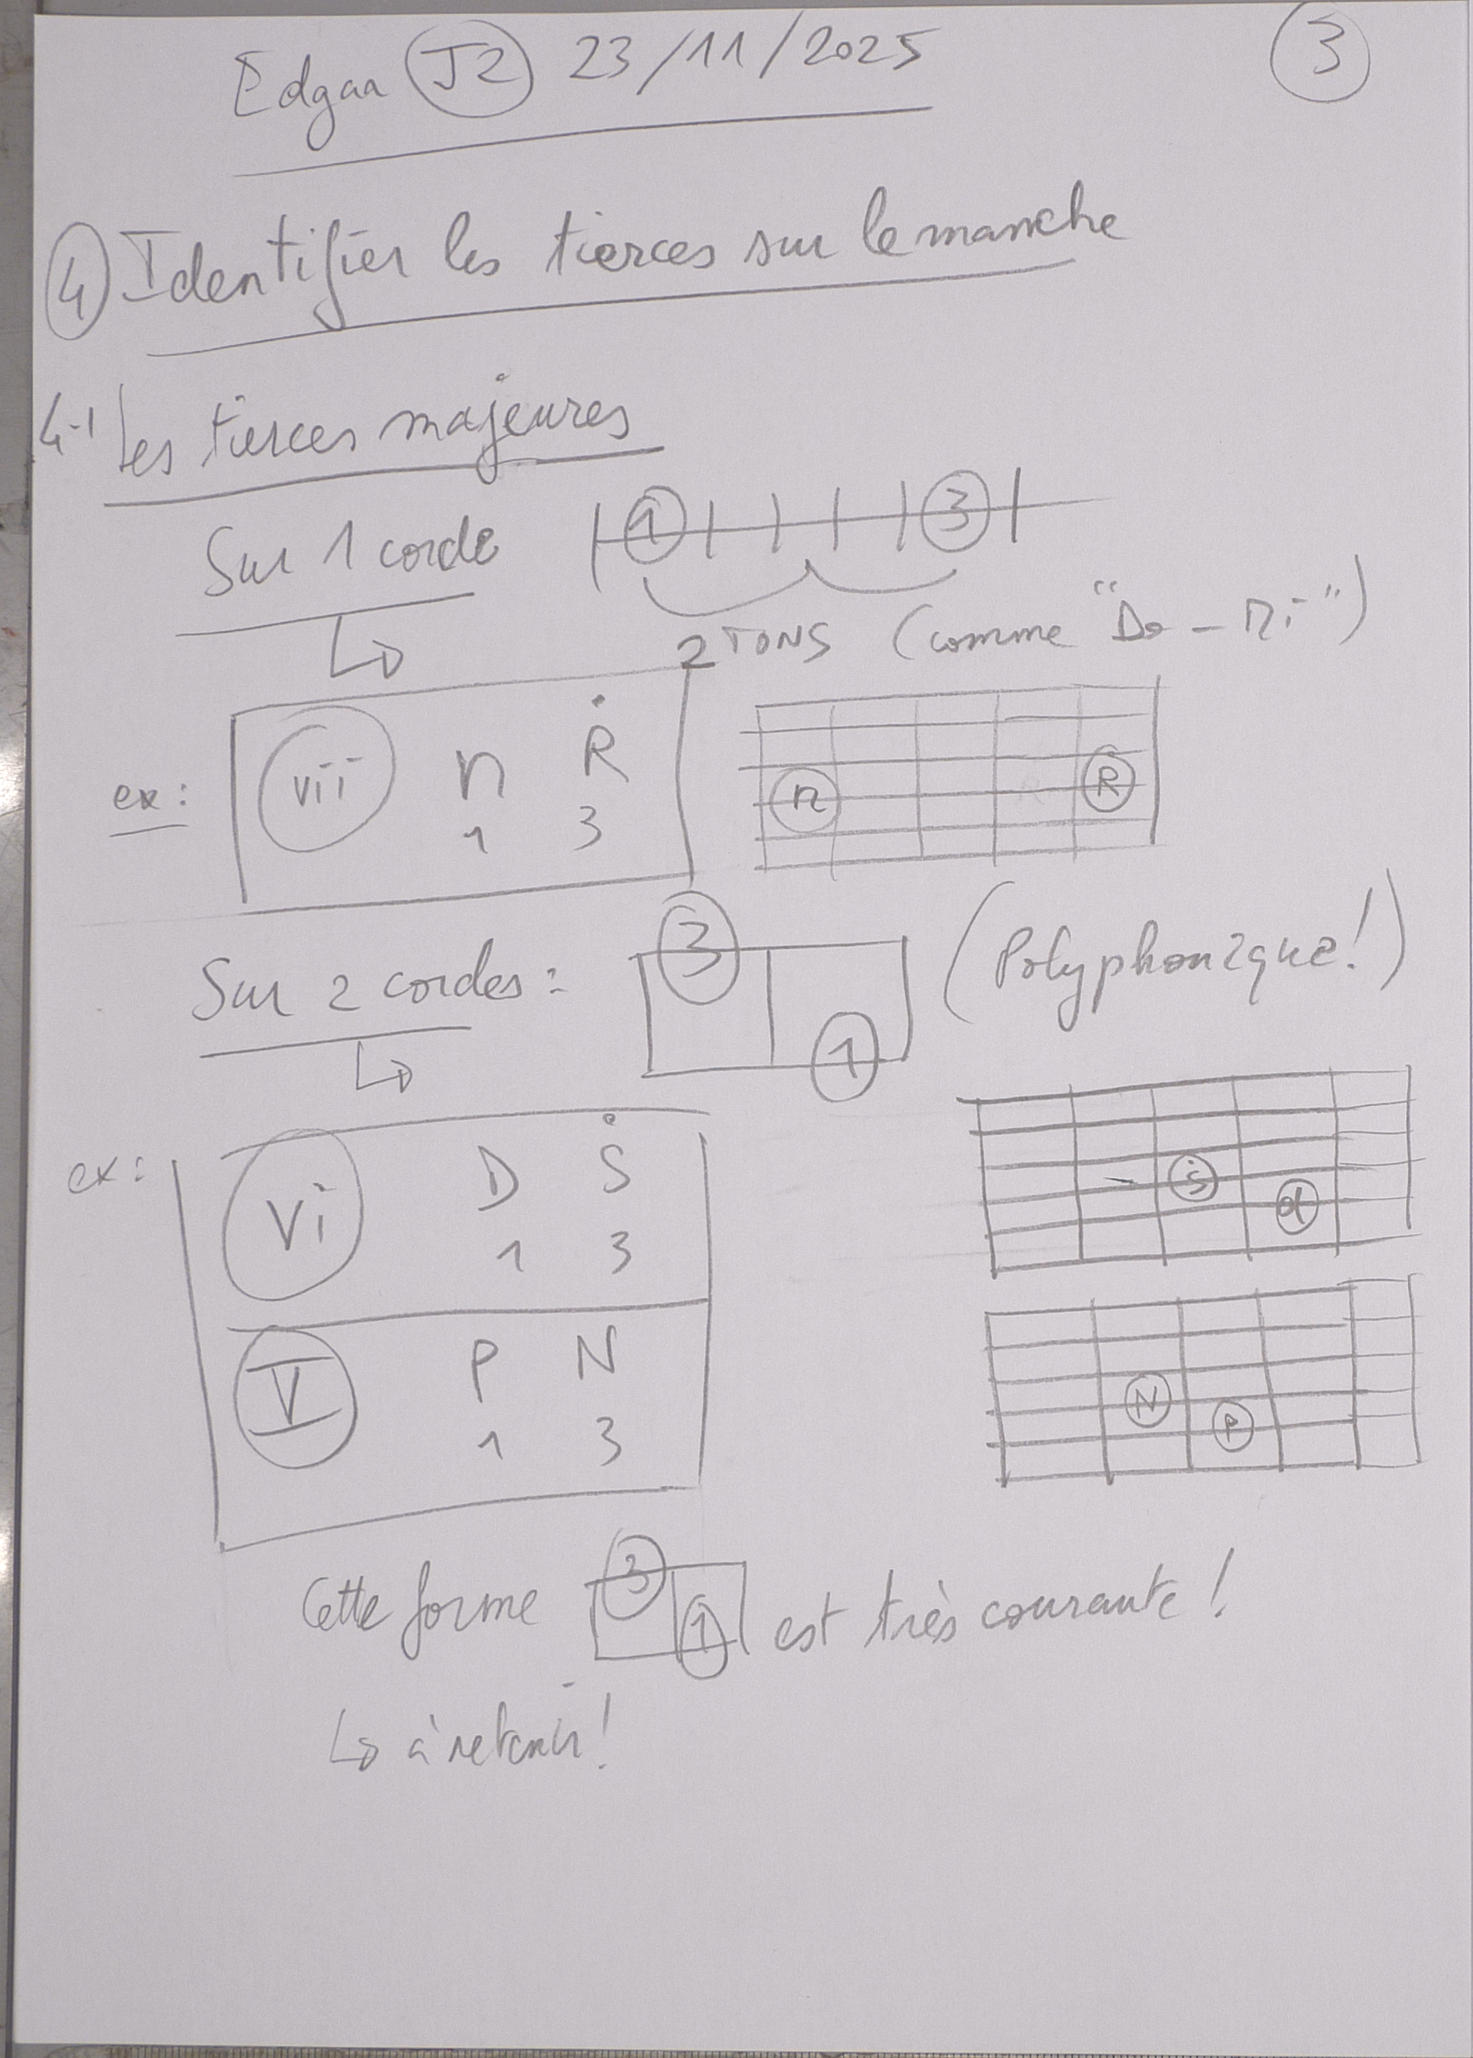 Edgar J2 23/11/2025
3
4 Identifier les tierces sur le manche
4-1 les tierces majeures
Sur 1 corde 1 3
2 TONS (comme "Do - Mi")
ex: vii n Ṙ
1 3
n R
Sur 2 cordes: 3 1 (Polyphonique!)
ex: Vi D Ṡ
1 3
Ṡ d
V P N
1 3
N P
Cette forme 3 1 est très courante!
à retenir!